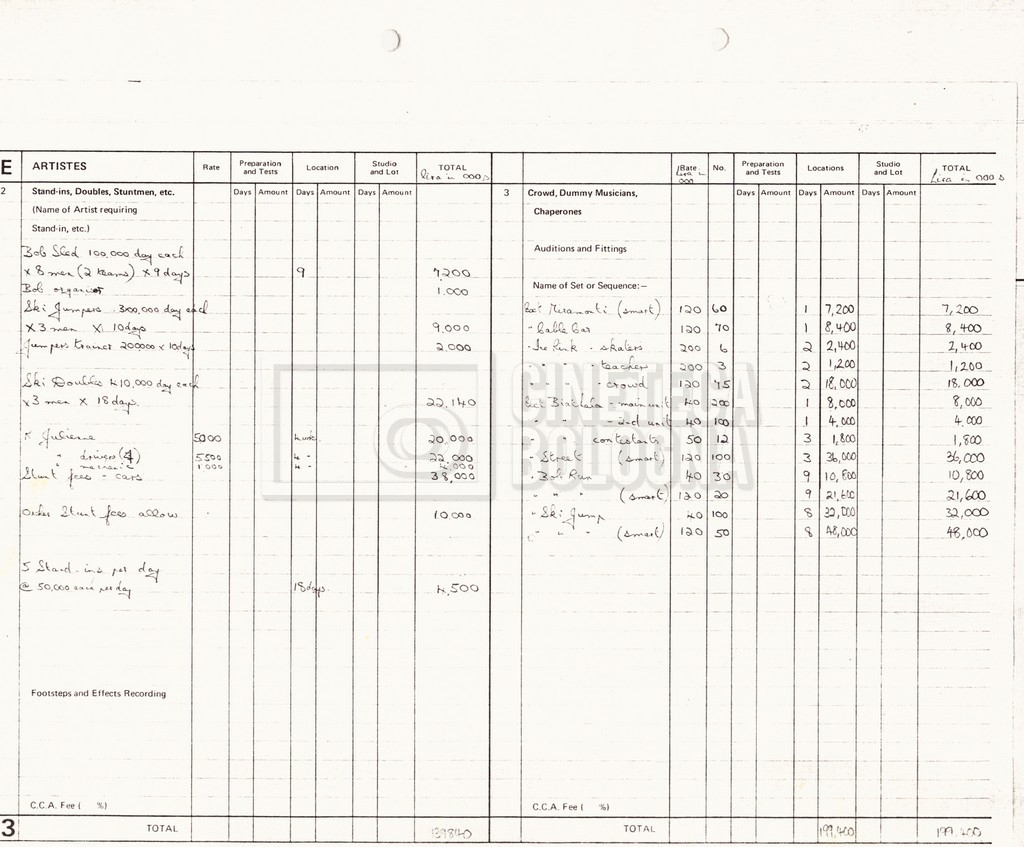 E ARTISTES Rate Preparation and Tests Location Studio and Lot TOTAL Lira in 000s
Days Amount Days Amount Days Amount
2 Stand-ins, Doubles, Stuntmen, etc.
(Name of Artist requiring
Stand-in, etc.)
Bob Sled 100,000 day each
x 8 men (2 teams) x 9 days 9 7,200
Bob organiser 1.000
Ski Jumpers 300,000 day each
x 3 men x 10 days 9,000
Jumpers trainer 200000 x 10 days 2,000
Ski Doubles 410,000 day each
x 3 men x 18 days. 22,140
R Julienne 5000 4 wk. 20,000
" drivers (4) 5500 4 " 22,000
" mechanic 1000 4 " 4,000
Stunt fees - cars 38,000
Other Stunt fees allow 10,000
5 Stand-ins per day
@ 50,000 each per day 18 days. 4,500
Footsteps and Effects Recording
C.C.A. Fee ( %)
3 TOTAL 139840
Rate Lira in 000 No. Preparation and Tests Locations Studio and Lot TOTAL Lira in 000s
Days Amount Days Amount Days Amount
3 Crowd, Dummy Musicians,
Chaperones
Auditions and Fittings
Name of Set or Sequence:—
Ext Miramonti (smart) 120 60 1 7,200 7,200
" Cable Car 120 70 1 8,400 8,400
" Ice Rink - skaters 200 6 2 2,400 2,400
" " " - teacher 200 3 2 1,200 1,200
" " " - crowd 120 75 2 18,000 18.000
Ext Biathlon - main unit 40 200 1 8,000 8,000
" " - 2nd unit 40 100 1 4,000 4.000
" " contestants 50 12 3 1,800 1,800
" Street (smart) 120 100 3 36,000 36,000
" Bob Run 40 30 9 10,800 10,800
" " " (smart) 120 20 9 21,600 21,600
" Ski Jump 40 100 8 32,000 32,000
" " " (smart) 120 50 8 48,000 48,000
C.C.A. Fee ( %)
TOTAL 199,400 199,400
CINETECA
BOLOGNA